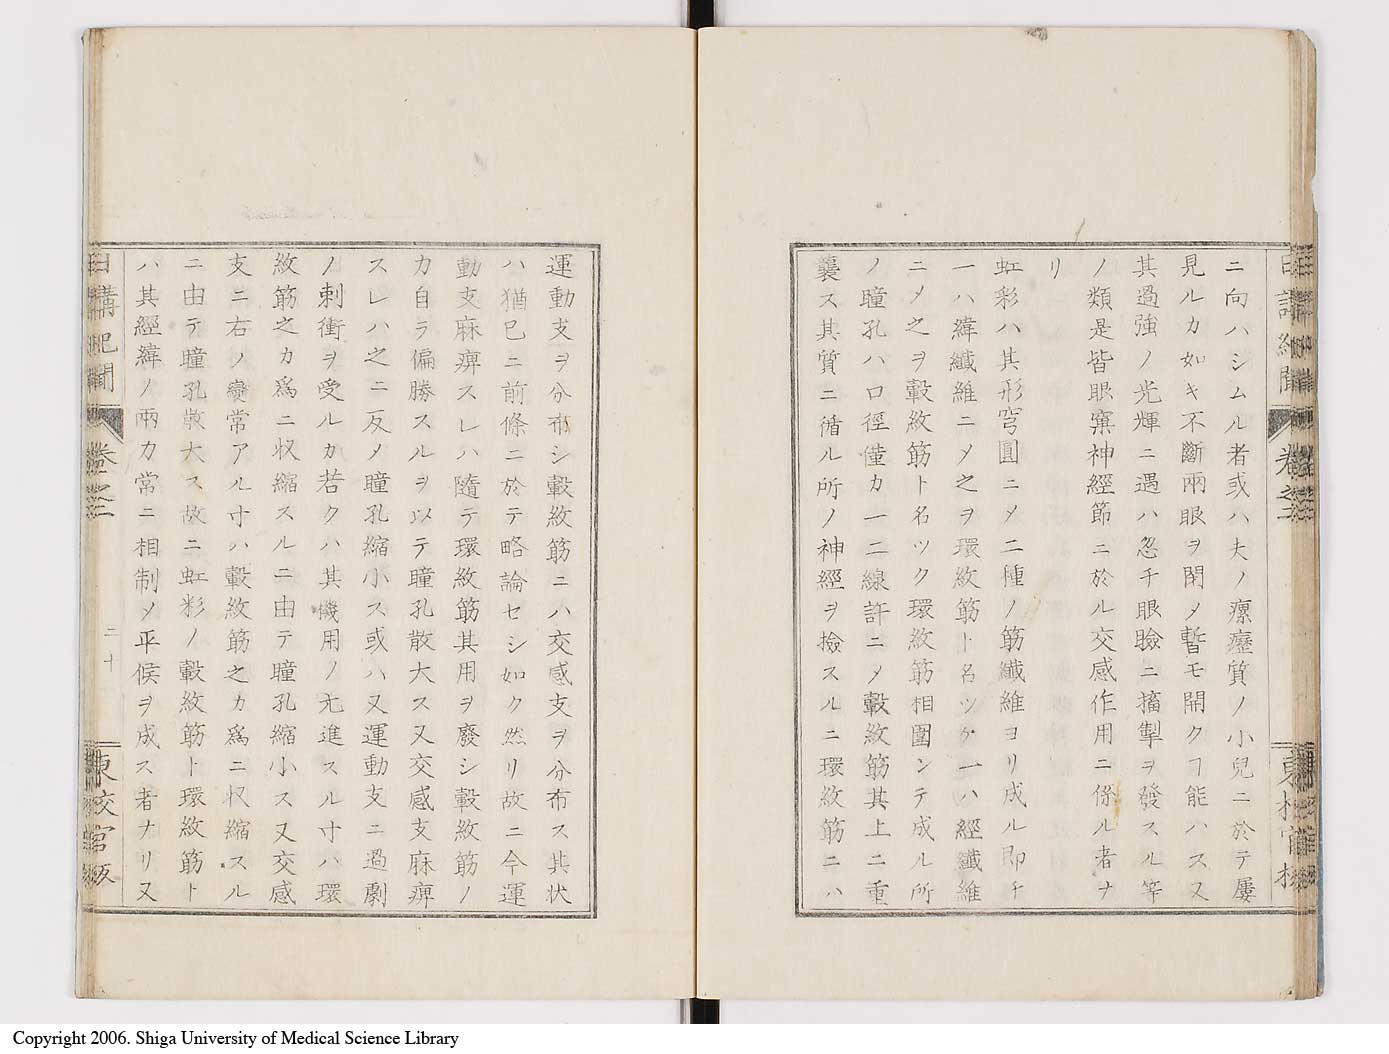 ニ向ハシムル者或ハ夫ノ瘰癧質ノ小兒ニ於テ屢
見ルカ如キ不斷兩眼ヲ閉メ暫モ開クヿ能ハス又
其過強ノ光輝ニ遇ハ忽チ眼瞼ニ搐掣ヲ發スル等
ノ類是皆眼窠神經節ニ於ル交感作用ニ係ル者ナ
リ
虹彩ハ其形穹圓ニメ二種ノ筋纖維ヨリ成ル即チ
一ハ緯纖維ニメ之ヲ環紋筋ト名ツケ一ハ經纖維
ニメ之ヲ轂紋筋ト名ツク環紋筋相圍ンテ成ル所
ノ瞳孔ハ口徑僅カ一二線許ニメ轂紋筋其上ニ重
襲ス其質ニ循ル所ノ神經ヲ撿スルニ環紋筋ニハ
運動支ヲ分布シ轂紋筋ニハ交感支ヲ分布ス其狀
ハ猶巳ニ前條ニ於テ略論セシ如ク然リ故ニ今運
動支麻痹スレハ隨テ環紋筋其用ヲ廢シ轂紋筋ノ
カ自ラ偏勝スルヲ以テ瞳孔散大ス又交感支麻痹
スレハ之ニ反メ瞳孔縮小ス或ハ又運動支ニ過劇
ノ刺衝ヲ受ルカ若クハ其機用ノ亢進スル寸ハ環
紋筋之カ爲ニ収縮スルニ由テ瞳孔縮小ス又交感
支ニ右ノ變常アル寸ハ轂紋筋之カ爲ニ収縮スル
ニ由テ瞳孔散大ス故ニ虹彩ノ轂紋筋ト環紋筋ト
ハ其經緯ノ兩力常ニ相制メ平候ヲ成ス者ナリ又
日講記聞
卷之二
二十
東校官版
Copyright 2006. Shiga University of Medical Science Library